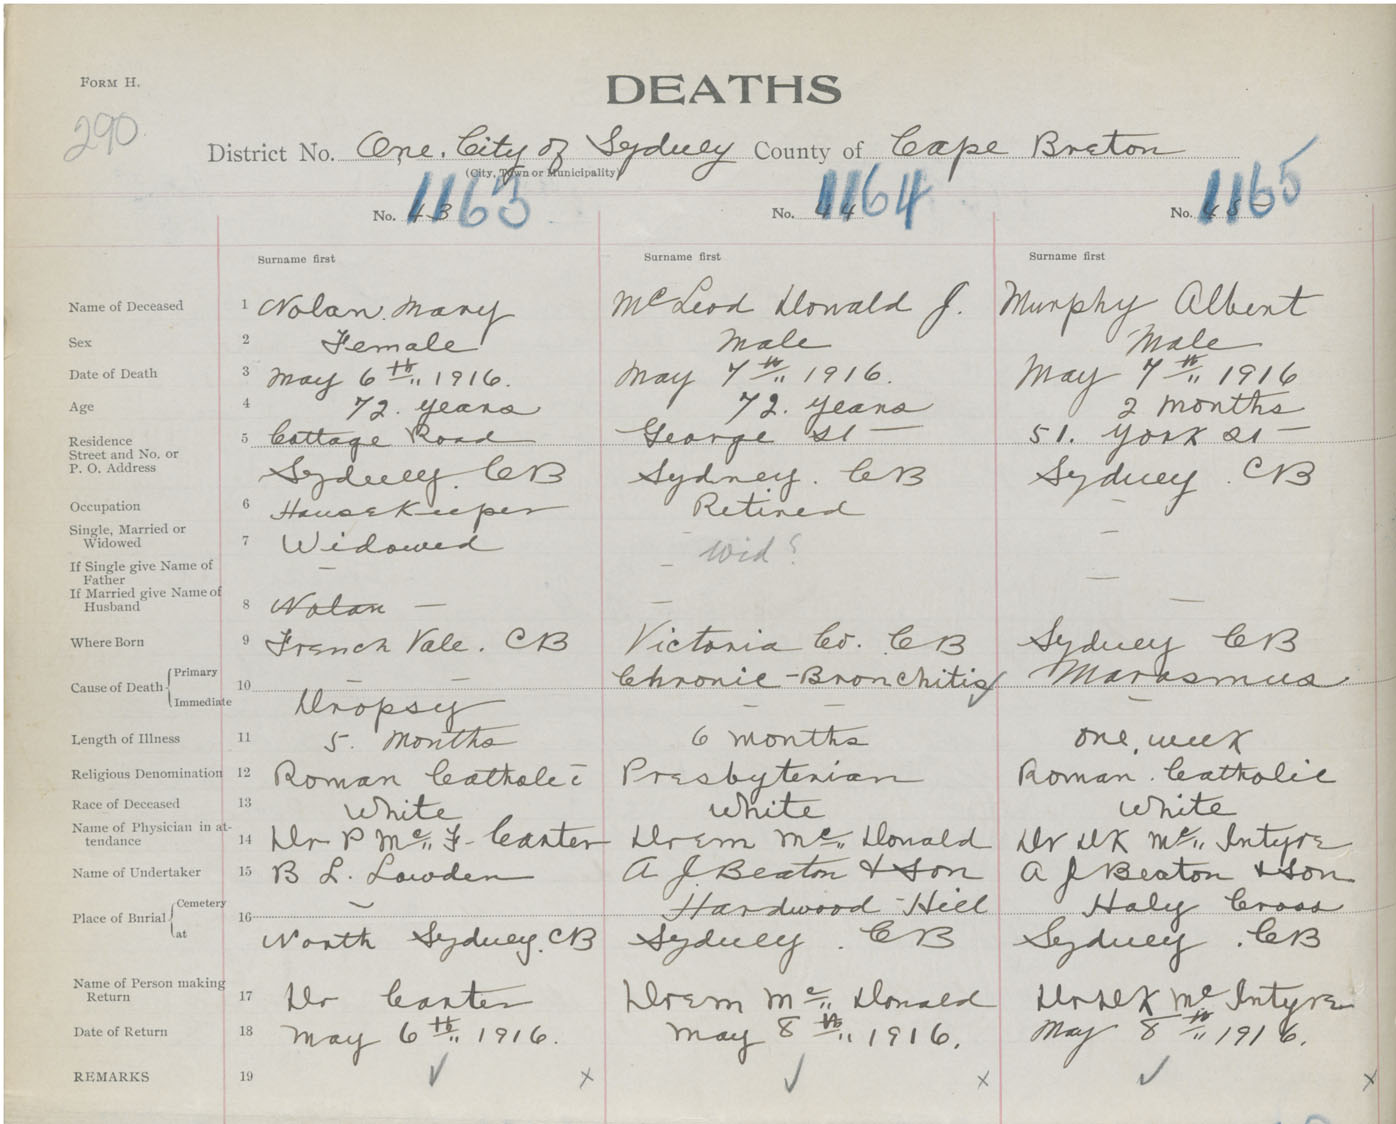 FORM H.
DEATHS
290
District No. One. City of Sydney County of Cape Breton
(City, Town or Municipality)
1163 1164 1165
No. 43 No. 44 No. 45
Surname first Surname first Surname first
Name of Deceased 1 Nolan. Mary McLeod Donald J. Murphy Albert
Sex 2 Female Male Male
Date of Death 3 May 6th 1916. May 7th 1916. May 7th 1916
Age 4 72. years 72. years 2 months
Residence 5 Cottage Road George St 51. York St
Street and No. or
P. O. Address Sydney. CB Sydney. CB Sydney. CB
Occupation 6 HouseKeeper Retired –
Single, Married or
Widowed 7 Widowed – Wid? –
If Single give Name of
Father – – –
If Married give Name of
Husband 8 Nolan – – –
Where Born 9 French Vale. CB Victoria Co. CB Sydney CB
Cause of Death Primary 10 – – Chronic-Bronchitis Marasmus
Immediate Dropsy – – –
Length of Illness 11 5. Months 6 months one. week
Religious Denomination 12 Roman Catholic Presbyterian Roman. Catholic
Race of Deceased 13 White White White
Name of Physician in at-
tendance 14 Dr P Mc. F. Carter Dr E M Mc Donald Dr D K Mc Intyre
Name of Undertaker 15 B L. Lowden A J Beaton & Son A J Beaton & Son
Place of Burial Cemetery 16 – Hardwood-Hill Holy Cross
at North Sydney. CB Sydney. CB Sydney. CB
Name of Person making
Return 17 Dr Carter Dr E M Mc Donald Dr D K Mc Intyre
Date of Return 18 May 6th 1916. May 8th 1916. May 8th 1916.
REMARKS 19 ✓ x ✓ x ✓ x